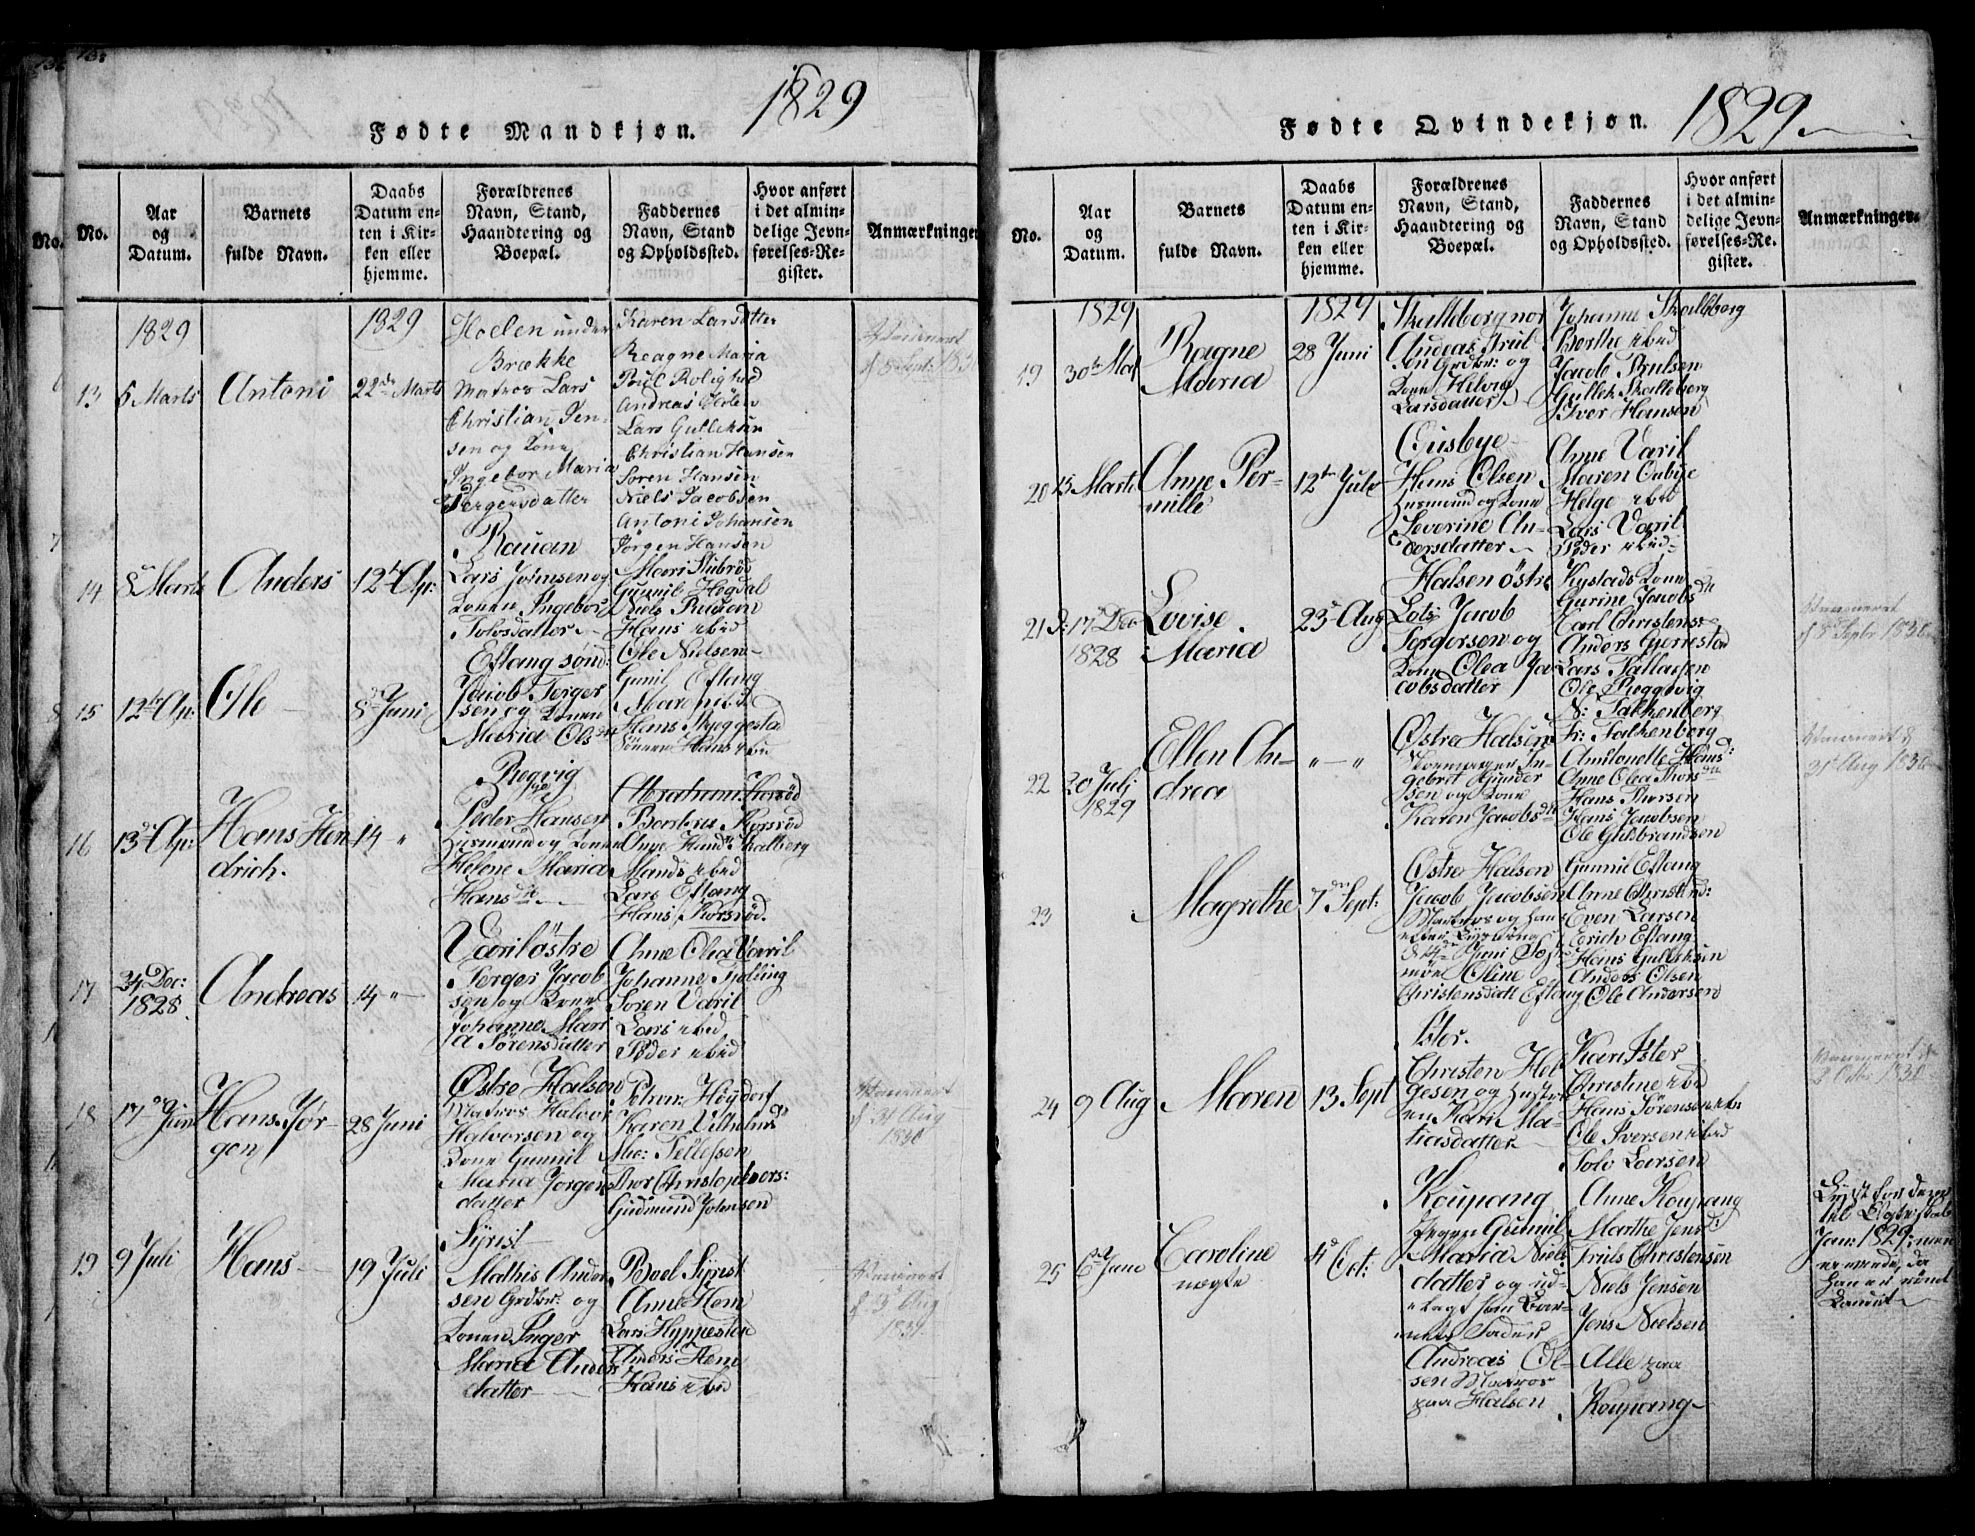 1829
Fødte Mandkjøn.
No.
No.
Aar og Datum.
Barnets fulde Navn.
Daabs Datum enten i Kirken eller hjemme.
Forældrenes Navn, Stand, Haandtering og Boepæl.
Faddernes Navn, Stand og Opholdssted.
Hvor anført i det almindelige Jevnførelses-Register.
Anmærkninger
1829
1829
13
6 Marts
Antoni
22de Marts
Hoelen under
Brække
Matros Lars
Christian Jen-
sen og Kone
Ingebor Maria
Tergersdatter
Karen Larsdatter
Reagne Maria
Poul Rolighed
Andreas Holen
Lars Gulliksen
Christian Hansen
Søren Hansen
Niels Jacobsen
Antoni Johansen
Jørgen Hansen
14
8de Marts
Anders
12te Apr:
Rauan
Lars Jørnsen og
Konen Ingebor
Tolvsdatter
Mari Stubrød
Gunnil Høgdal
Niels Rauan
Hans ibid
Ole Nielsen
15
12te Ap:
Ole
8de Juni
Eftang sønd:
Jacob Terger
sen og Konen
Maria Olsdtr
Gunil Eftang
Maren ibid
Hans Skjeggestad
Hans ibid
16
13de Ap:
Hans Hen
drich.
14 "
Regvig
Peder Hansen
Huusmand og Konen
Helene Maria
Hansdtr
Abraham Korsrød
Anne Handr Skalberg
Mands ibid
Lars Eftang
Hans Korsrød.
17
24 Dec:
1828
Andreas
14 "
Varil østre
Terger Jacob
sen og Kone
Johanne Mari
a Sørensdatter
Anne Olea Varil
Johanne Tjølling
Søren Varil
Lars ibid
Peder ibid
18
17de Juni
Hans Jør-
gen
28 Juni
Østre Halsen
Matros Halvor
Halvorsen og
Kone Gunnil
Maria Jørgens
datter
Karen Vilhelmsdtr
Tellefsen
Thor Christophers:
Gudmund Johnsen
31 Aug
1830
19
9 Juli
Hans
19 Juli
Syrist
Mathis Ander
sen Grdbr: og
Konen Inger
Maria Anders
datter
Boel Syrist
Anne Hem
Lars Hyppesten
Anders Hem
Hans ibid
Fødte Qvindekjøn.
1829
No.
Aar og Datum.
Barnets fulde Navn.
Daabs Datum enten i Kirken eller hjemme.
Forældrenes Navn, Stand, Haandtering og Boepæl.
Faddernes Navn, Stand og Opholdssted.
Hvor anført i det almindelige Jevnførelses-Register.
Anmærkninger.
1829
1829
19
30te Mai
Ragne
Maria
28 Juni
Skalleberg nor
Andeas Trul
sen Grdbr: og
Kone Helvig
Larsdatter
Johanne Skalleberg
Berthe ibid
Jacob Trulsen
Gullik Skalleberg
Iver Hansen
20
15 Marts
Anne Per-
nille
12te July
Guisbye
Hans Olsen
Huusmand og Kone
Severine An-
dersdatter
Anne Varil
Maren Onbye
Helge ibid
Lars Varil
Peder ibid
21
17de Dec
1828
Lovise
Maria
23de Aug
Halsen østre
Lots Jacob
Torgersen og
Kone Olea Ja
cobsdatter
Rystads Kone
Gurine Jacobsdtr
Carl Christens:
Anders Gjerrestad
Lars Pallassen
Ole Reggevig
N: Falkenberg
22
20 Julj
1829
Ellen An-
drea
" — "
Østre Halsen
Skoemager In-
gebret Gunder
sen og Kone
Karen Jacobsdtr
Fr: Falkenborg
Antonette Hans d:
Anne Olea Thorsdtr
Hans Thorsen
Hans Jacobsen
Ole Gulbrandsen
31te Aug 1830
23
Magrethe
7de Sept:
Østre Halsen
Jacob Jacobsen
Matros og hans
Oline
Christensdatt Eftang
Gunnil Eftang
Anne Christind:
Even Larsen
Erich Eftang
Hans Gulliksen
Anders Olsen
Ole Andersen
24
9 Aug
Maren
13 Sept
Ister.
Christen Hel
gesen og Hustru
en Kari Ma-
tiasdatter
Kari Ister
Christine ibid
Hans Sørensen ibm
Ole Iversen ibid
Solv Larsen
25
6te June
Caroline
nægte
4de Oct:
Koupang
Pigen Gunnil
Maria Niels
datter og ud-
lagt som Bar-
nets Fader
Andreas Ol-
sen Matros
paa Halsen
Anne Koupang
Marthe Jens d:
Truls Christensen
Niels Jensen
Jens Nielsen
Alle paa
Koupang
Lyst for dem
til Ægteskab
Jan: 1829: men